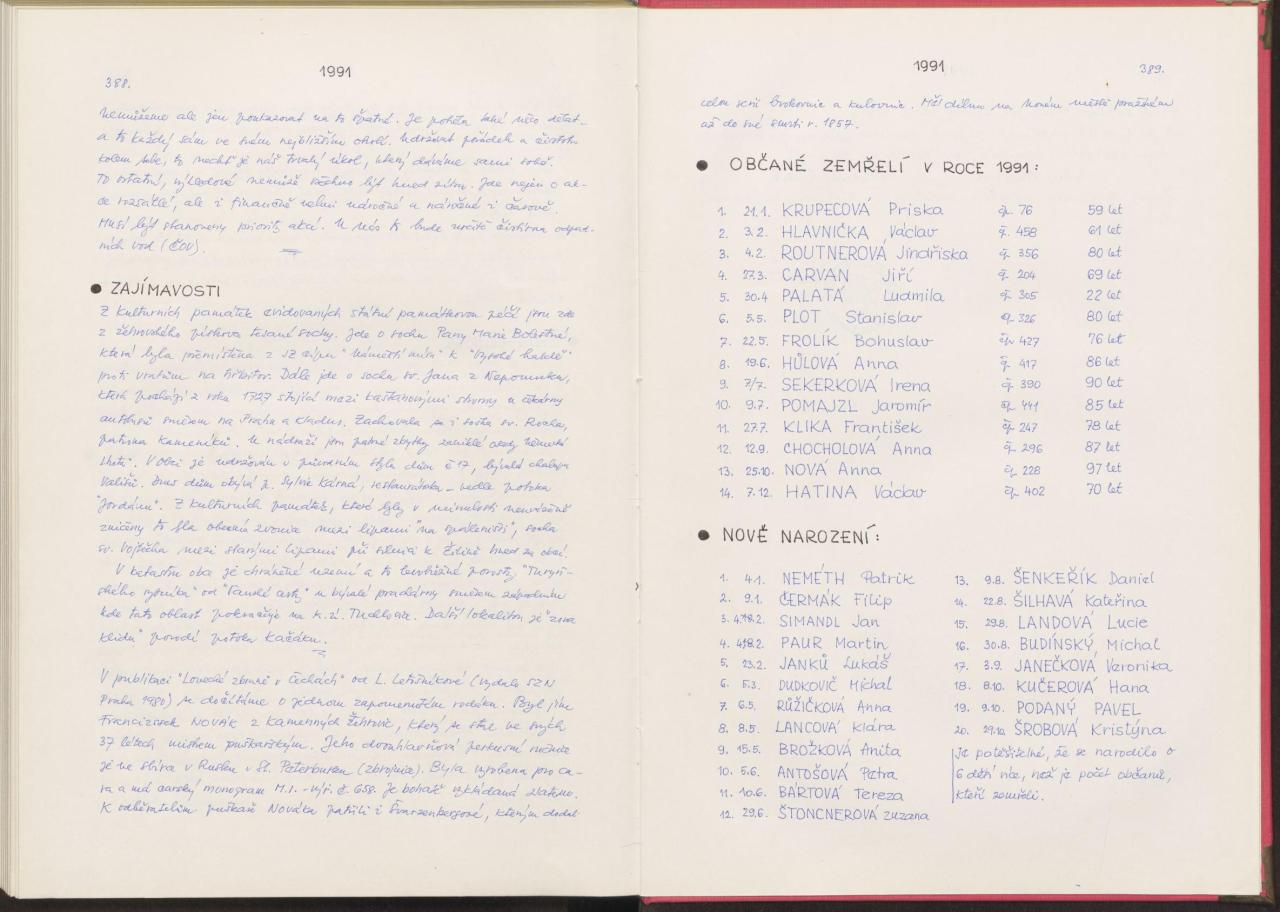 388.
1991
Nemůžeme ale jen poukazovat na to špatné. Je potřeba také něco dělat -
a to každý sám ve svém nejbližším okolí. Udržovat pořádek a čistotu
kolem sebe, to nechť je náš trvalý úkol, který dáváme sami sobě.
To ostatní, výhledové nemůže všechno být hned zítra. Jde nejen o ak-
ce rozsáhlé, ale i finančně velmi náročné a náročné i časově.
Musí být stanoveny priority akcí. U nás to bude určitě čistírna odpad-
ních vod (ČOV).
● ZAJÍMAVOSTI
Z kulturních památek evidovaných státní památkovou péčí jsou zde
z žehrovského pískovce tesané sochy. Jde o sochu Panny Marie Bolestné,
která byla přemístěna z JZ cípu "Náměstí míru" k "Vysoké
proti vratům na hřbitov. Dále jde o sochu sv. Jana z Nepomuku,
která pochází z roku 1727 stojící mezi kaštanovými stromy u čekárny
autobusů směrem na Prahu a Kladno. Zachovala se i socha sv. Rocha,
patrona kameníků. U nádraží jsou patrné zbytky zaniklé osady
Lhota". V obci je udržován v původním stylu dům č 17, bývalá chalupa
Dnes dům obývá p. Sylvie Kárná, restaurátorka - vedle potoka
"Jordánu". Z kulturních památek, které byly v minulosti
zničeny to byla obecní zvonice mezi lipami "na spáleništi", socha
sv. Vojtěcha mezi starými lipami při silnici k Žilině hned za obcí.
V katastru obce je chráněné území a to
od u bývalé prádelny směrem západním
kde tato oblast pokračuje na k.ú. Tuchlovice. Další lokalitou je "zona
klidu" povodí potoka Kačáku.
V publikaci "Lovecké zbraně v Čechách" od L. Letošníkové (vydalo SZN
Praha 1980) se dočítáme o jednom zapomenutém rodáku. Byl jím
Franciscek NOVÁK z Kamenných Žehrovic, který se stal ve svých
37 létech mistrem puškařským. Jeho dvouhlavňová perkusní ručnice
je ve sbírce v Rusku v St. Peterburku (zbrojnice). Byla vyrobena pro ca-
ra a má carský monogram M.I. - výr. č. 658. Je bohatě vykládaná zlatem.
K odběratelům puškaře Nováka patřili i Švarzenbergové, kterým dodal
1991
389.
celou serii brokovnic a kulovnic. Měl dílnu na Novém městě pražském
až do své smrti r. 1857.
● OBČANÉ ZEMŘELÍ V ROCE 1991:
1. 21.1. KRUPECOVÁ Priska čp. 76 59 let
2. 3.2. HLAVNIČKA Václav č. 458 61 let
3. 4.2. ROUTNEROVÁ Jindřiska č. 356 80 let
4. 27.3. CARVAN Jiří č. 204 69 let
5. 30.4 PALATÁ Ludmila č. 305 22 let
6. 5.5. PLOT Stanislav čp. 326 80 let
7. 22.5. FROLÍK Bohuslav čp. 427 76 let
8. 19.6. HŮLOVÁ Anna čp. 417 86 let
9. 7/7. SEKERKOVÁ Irena čp. 390 90 let
10. 9.7. POMAJZL Jaromír čp. 441 85 let
11. 27.7. KLIKA František čp. 247 78 let
12. 12.9. CHOCHOLOVÁ Anna čp. 296 87 let
13. 25.10. NOVÁ Anna čp. 228 97 let
14. 7.12. HATINA Václav čp. 402 70 let
● NOVĚ NAROZENÍ:
1. 4.1. NEMÉTH Patrik
2. 9.1. ČERMÁK Filip
3. 18.2. SIMANDL Jan
4. 18.2. PAUR Martin
5. 23.2. JANKŮ Lukáš
6. 5.3. DUDKOVIČ Michal
7. 6.5. RŮŽIČKOVÁ Anna
8. 8.5. LANCOVÁ Klára
9. 15.5. BROŽKOVÁ Anita
10. 5.6. ANTOŠOVÁ Petra
11. 10.6. BÁRTOVÁ Tereza
12. 29.6. ŠTONCNEROVÁ Zuzana
13. 9.8. ŠENKEŘÍK Daniel
14. 22.8. ŠILHAVÁ Kateřina
15. 29.8. LANDOVÁ Lucie
16. 30.8. BUDÍNSKÝ Michal
17. 3.9. JANEČKOVÁ Veronika
18. 8.10. KUČEROVÁ Hana
19. 9.10. PODANÝ PAVEL
20. 29.10. ŠROBOVÁ Kristýna
Je potěšitelné, že se narodilo o
6 dětí více, než je počet občanů,
kteří zemřeli.